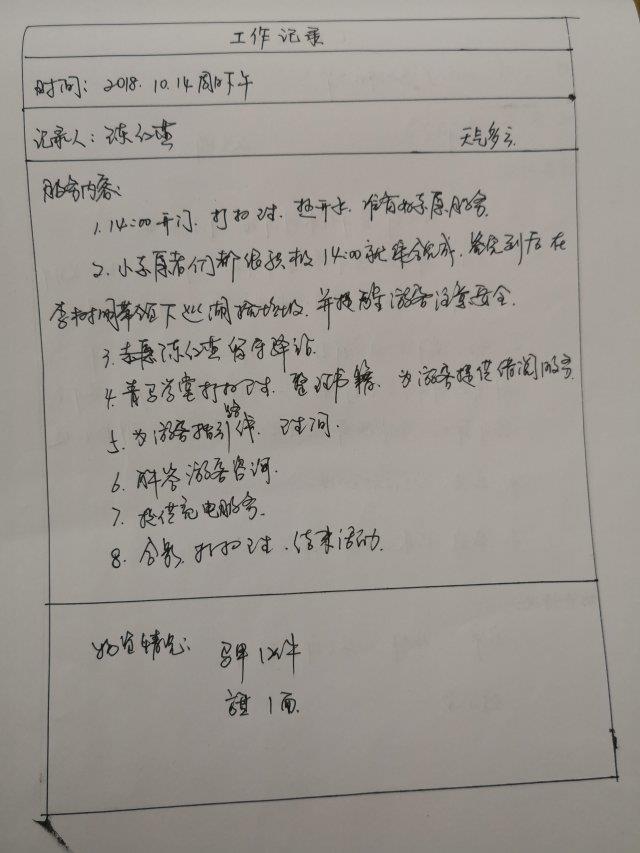 工作记录
时间：2018.10.14.周日下午
记录人：陈红莲 天气多云
服务内容：
1.14:00开门.打扫卫生.热开水.准备好志愿服务.
2.小志愿者们都很积极14:00就集合完成.首先到后在
李带领下巡湖捡垃圾.并提醒游客注意安全.
3.志愿陈红莲留守驿站.
4.青马学堂打扫卫生.整理书籍.为游客提供借阅服务.
5.为游客指引路线.卫生间.
6.解答游客咨询.
7.提供充电服务.
8.合影.打扫卫生.结束活动.
物资情况：马甲12件
旗1面.